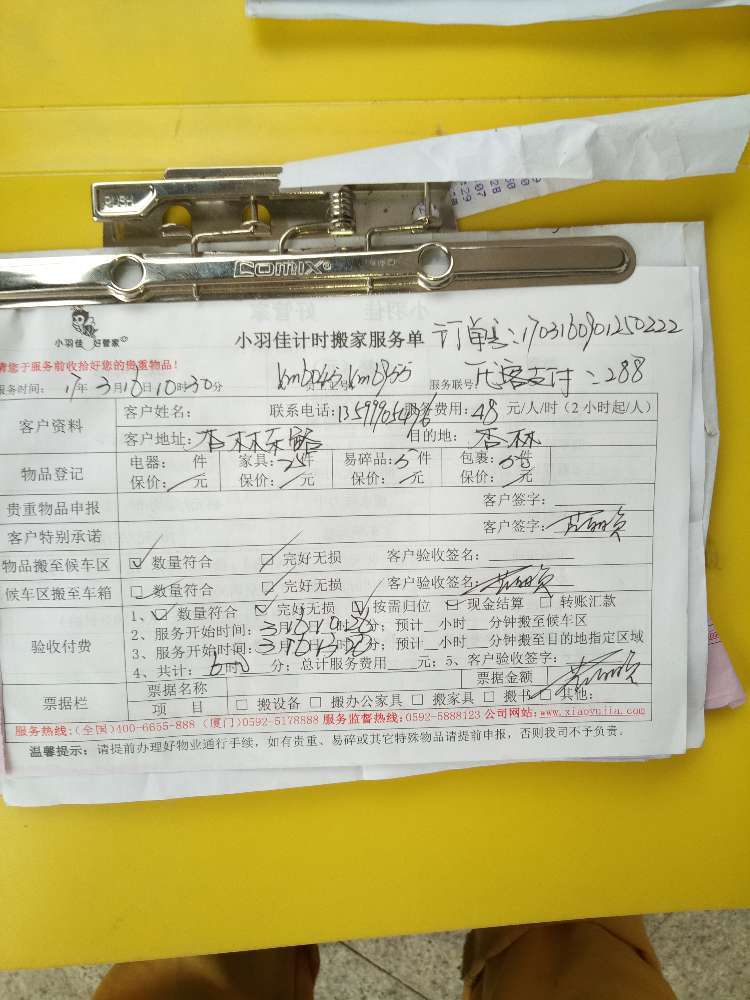 PUSH
COMIX
小羽佳 好管家
小羽佳计时搬家服务单 订单号:1703160901250222
请您于服务前收拾好您的贵重物品!
服务时间: 17年3月16日10时30分 服务联号: 代客支付:288
客户资料
客户姓名: 联系电话: 服务费用:48 元/人/时(2 小时起/人)
客户地址:杏林东路 目的地:杏林
物品登记
电器: 件 家具: 件 易碎品:5件 包裹: 件
保价: 元 保价: 元 保价: 元 保价: 元
贵重物品申报 客户签字:
客户特别承诺 客户签字:
物品搬至候车区 ☑ 数量符合 ☑ 完好无损 客户验收签名:
候车区搬至车箱 ☑ 数量符合 ☑ 完好无损 客户验收签名:
验收付费
1、☑ 数量符合 ☑ 完好无损 ☑ 按需归位 ☐ 现金结算 ☐ 转账汇款
2、服务开始时间:3月16日10时30分;预计__小时__分钟搬至候车区
3、服务开始时间:3月16日13时30分;预计__小时__分钟搬至目的地指定区域
4、共计:6时 分;总计服务费用___元;5、客户验收签字:
票据栏
票据名称 票据金额
项 目 ☐ 搬设备 ☐ 搬办公家具 ☐ 搬家具 ☐ 搬书 ☐ 其他:
服务热线:(全国)400-6655-888 (厦门)0592-5178888 服务监督热线:0592-5888123 公司网站:www.xiaoyujia.com
温馨提示:请提前办理好物业通行手续,如有贵重、易碎或其它特殊物品请提前申报,否则我司不予负责。